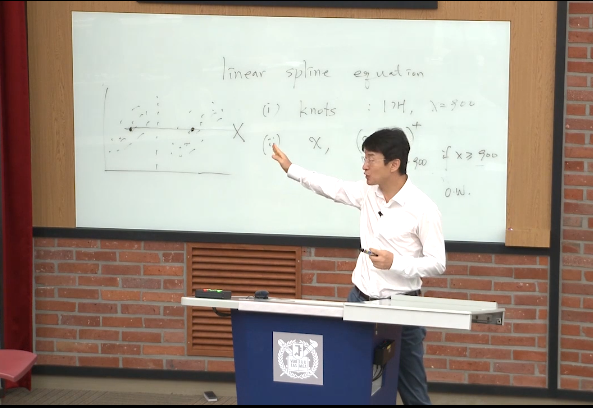 linear spline equation
(i) knots : 1개, λ=900
X (ii) x, ( )+
900 if x ≥ 900
o.w.